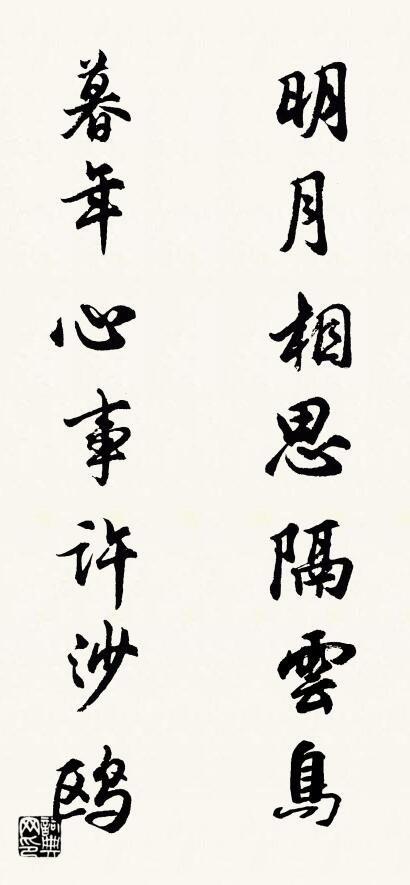 明月相思隔雲鳥
暮年心事許沙鷗